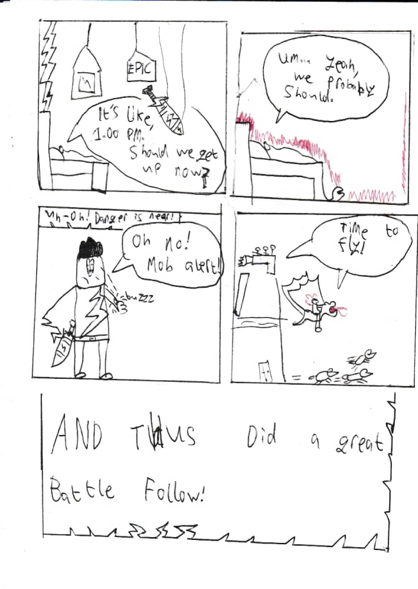 M
EPIC
It's like,
1.00 PM.
Should we get
up now?
um... Yeah,
we probably
Should.
Uh-Oh! Danger is near!
Oh no!
Mob alert!
buzzz
Time to
fly!
AND THUS Did a great
Battle Follow!